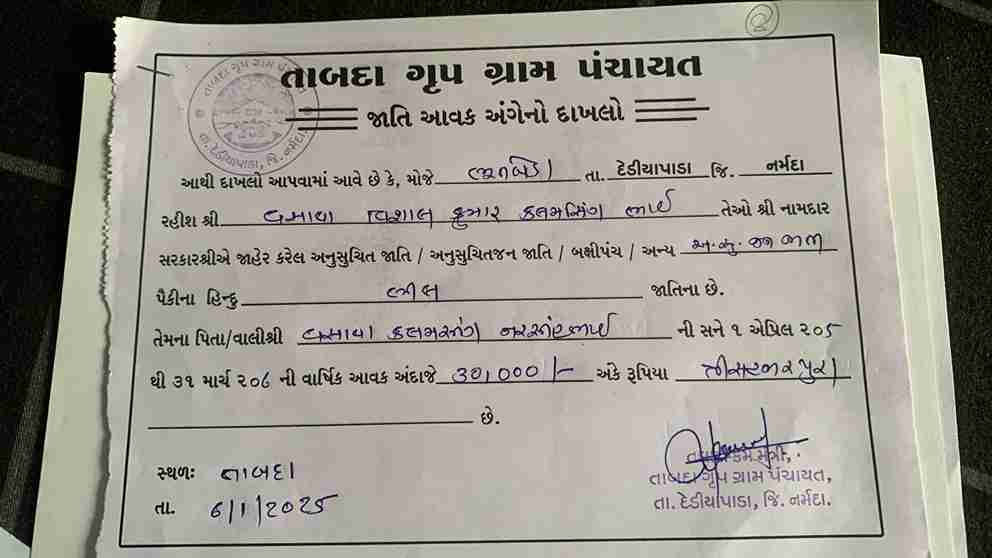 ૨
તાબદા ગૃપ ગ્રામ પંચાયત
જાતિ આવક અંગેનો દાખલો
આથી દાખલો આપવામાં આવે છે કે, મોજે તા. દેડીયાપાડા જિ. નર્મદા
રહીશ શ્રી વસાવા વિશાલ કુમાર કલમસિંગ ભાઈ તેઓ શ્રી નામદાર
સરકારશ્રીએ જાહેર કરેલ અનુસુચિત જાતિ / અનુસુચિતજન જાતિ / બક્ષીપંચ / અન્ય અ.નુ. જન જાત
પૈકીના હિન્દુ ભીલ જાતિના છે.
તેમના પિતા/વાલીશ્રી વસાવા કલમસીંગ નરસીંહભાઈ ની સને ૧ એપ્રિલ ૨૦૫
થી ૩૧ માર્ચ ૨૦૬ ની વાર્ષિક આવક અંદાજે 30,000/- અંકે રૂપિયા ત્રીસહજાર પુરા
છે.
સ્થળઃ તાબદા
તા. 6/1/2025
તલાટી કમ મંત્રી,
તાબદા ગૃપ ગ્રામ પંચાયત,
તા. દેડીયાપાડા, જિ. નર્મદા.